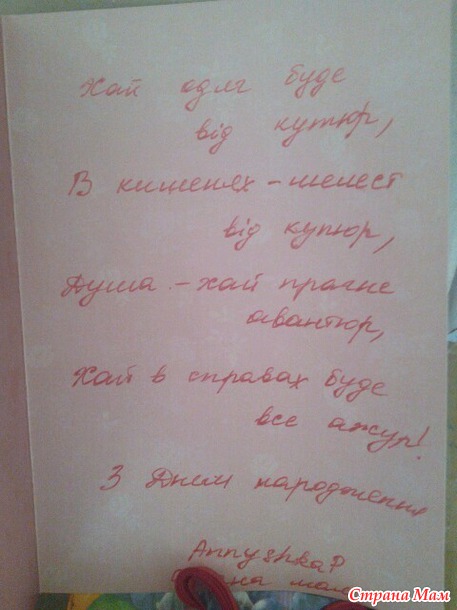 Хай одяг буде
від кутюр,
В кишенях - шелест
від купюр,
Душа - хай прагне
авантюр,
Хай в справах буде
все ажур!
З Днем народження
AnnyshkaP
Страна Мам